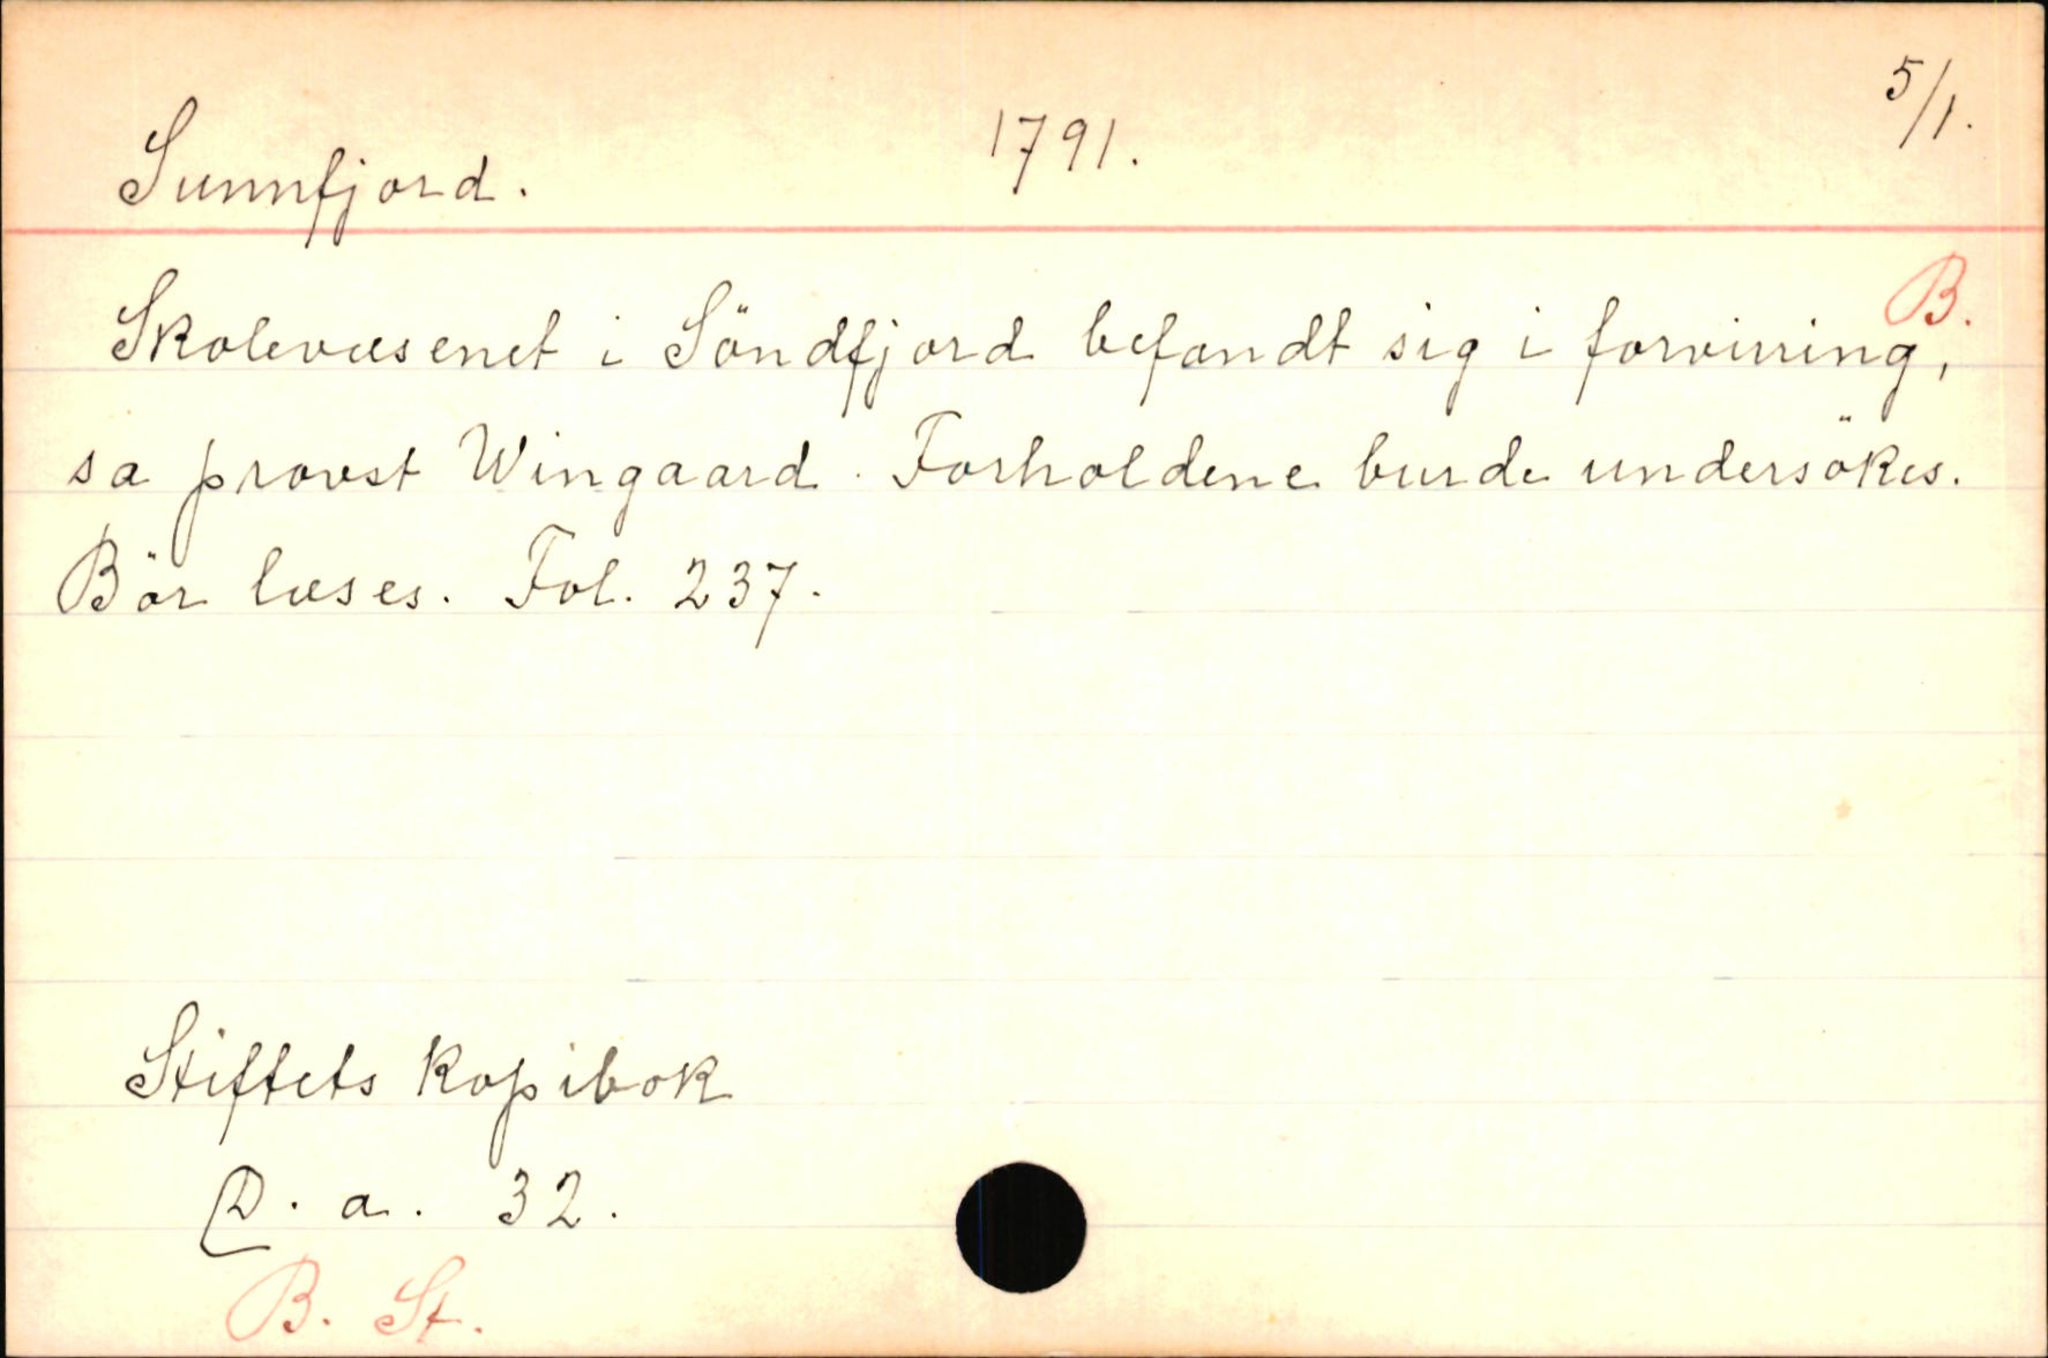 Sunnfjord. 1791. 5/1.
B.
Skolevæsenet i Söndfjord befandt sig i forvirring,
sa provst Wingaard. Forholdene burde undersökes.
Bör læses. Fol. 237.
Stiftets kopibok
D. a. 32.
B. St.